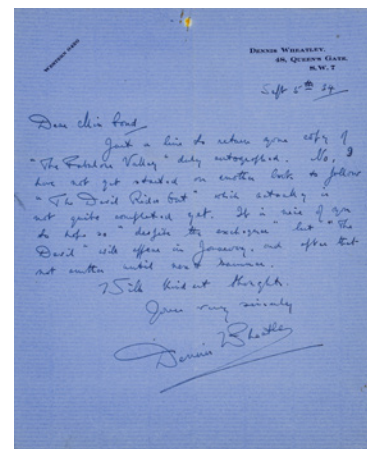 WESTERN 0280
DENNIS WHEATLEY.
48, QUEEN'S GATE.
S.W. 7
Sept 5th 34
Dear Miss Bond
Just a line to return your copy of
"The Fabulous Valley" duly autographed. No, I
have not yet started on another book to follow
"The Devil Rides Out" which actually is
not quite completed yet. It is nice of you
to hope so "despite the " but "The
Devil" will appear in January, and after that
not another until next summer.
With kindest thoughts.
Yours very sincerely
Dennis Wheatley